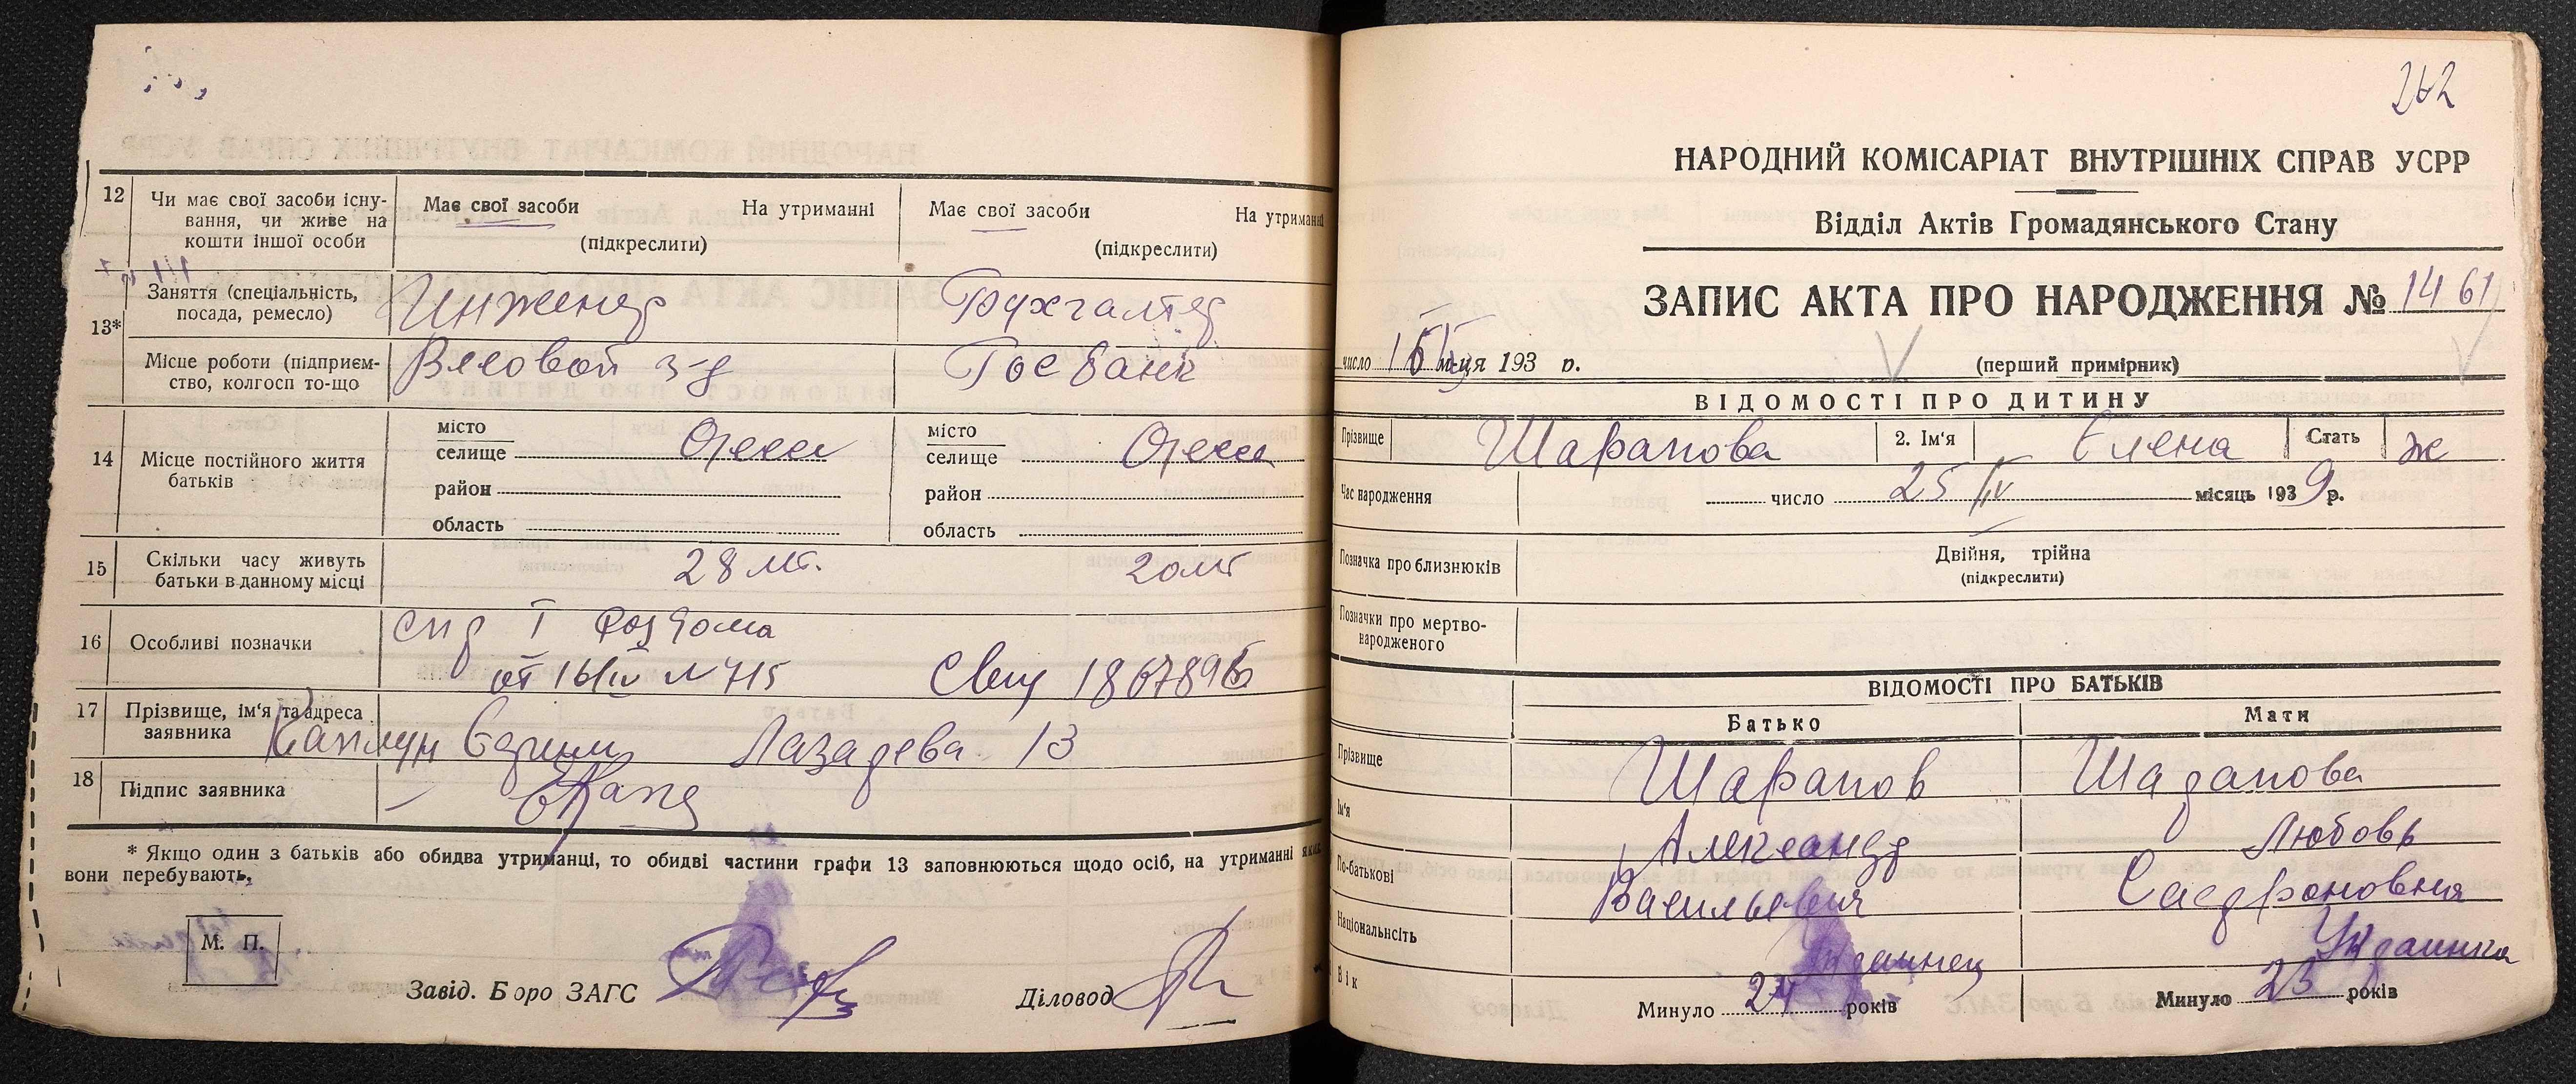 12
Чи має свої засоби існу-
вання, чи живе на
кошти іншої особи
Має свої засоби На утриманні
(підкреслити)
Має свої засоби На утриманні
(підкреслити)
13*
Заняття (спеціальність,
посада, ремесло)
Инженер
Бухгалтер
Місце роботи (підприєм-
ство, колгосп то-що
з-д
Госбанк
14
Місце постійного життя
батьків
місто
селище Одесса
район
область
місто
селище Одесса
район
область
15
Скільки часу живуть
батьки в данному місці
28 лт.
20 лт
16
Особливі позначки
спр I Роддома
от 16/IV N 715
17
Прізвище, ім'я та адреса
заявника
Каплун Лазарева 13
18
Підпис заявника
* Якщо один з батьків або обидва утриманці, то обидві частини графи 13 заповнюються щодо осіб, на утриманні яких
вони перебувають.
М. П.
Завід. Бюро ЗАГС
Діловод
262
НАРОДНИЙ КОМІСАРІАТ ВНУТРІШНІХ СПРАВ УСРР
Відділ Актів Громадянського Стану
ЗАПИС АКТА ПРО НАРОДЖЕННЯ № 1461
число м-ця 193 р.
(перший примірник)
ВІДОМОСТІ ПРО ДИТИНУ
Прізвище Шарапова 2. Ім'я Елена Стать ж
Час народження число 25/IV місяць 1939 р.
Позначка про близнюків
Двійня, трійна
(підкреслити)
Позначки про мертво-
народженого
ВІДОМОСТІ ПРО БАТЬКІВ
Батько Мати
Прізвище Шарапов Шарапова
Ім'я Александр Любовь
По-батькові Васильевич Сафроновна
Національність Украинец Украинка
Вік Минуло 24 років Минуло 23 років